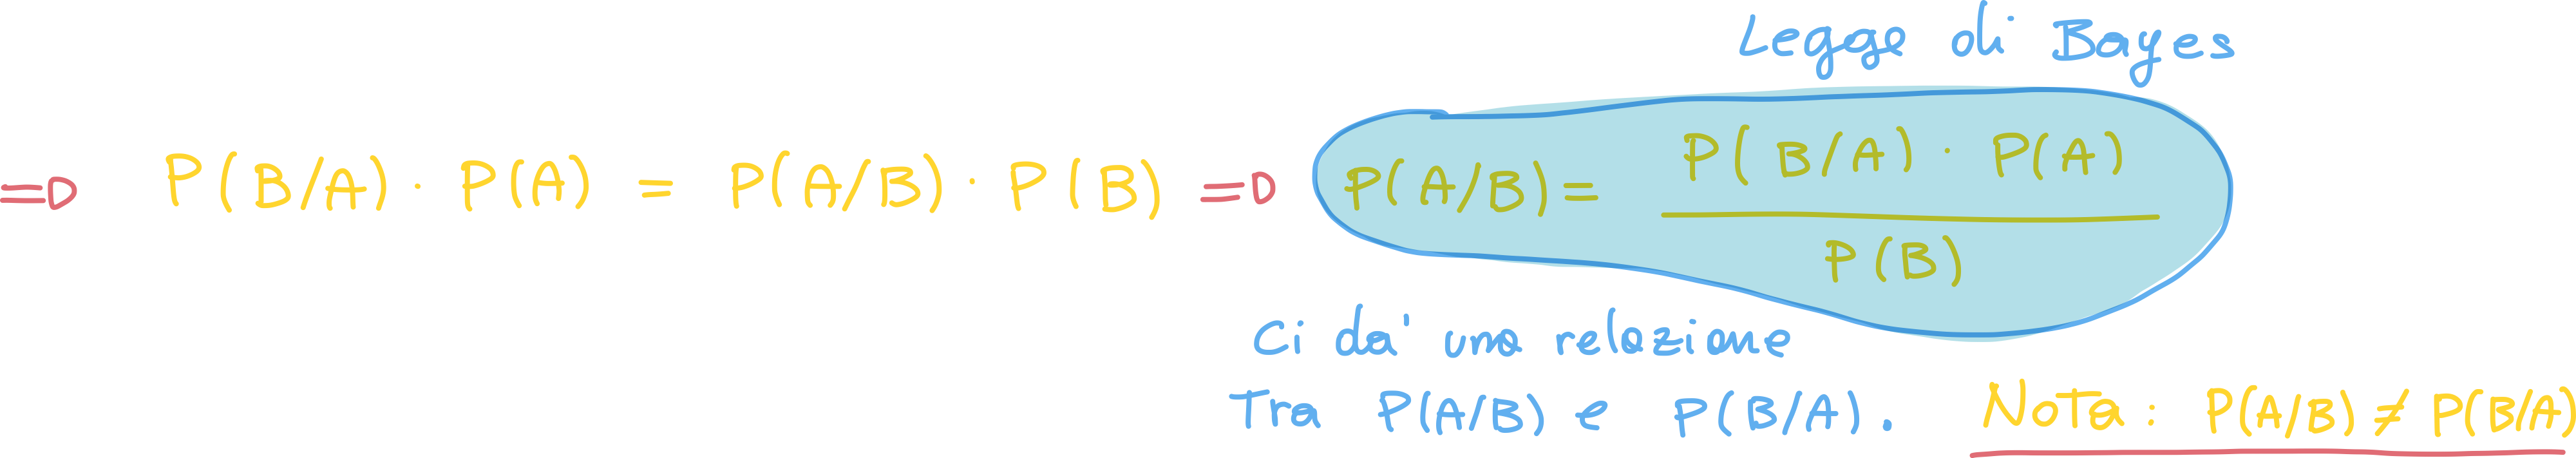 Legge di Bayes
=D P(B/A) · P(A) = P(A/B) · P(B) =D P(A/B) = P(B/A) · P(A)
P(B)
Ci da' una relazione
Tra P(A/B) e P(B/A). Nota: P(A/B) ≠ P(B/A)